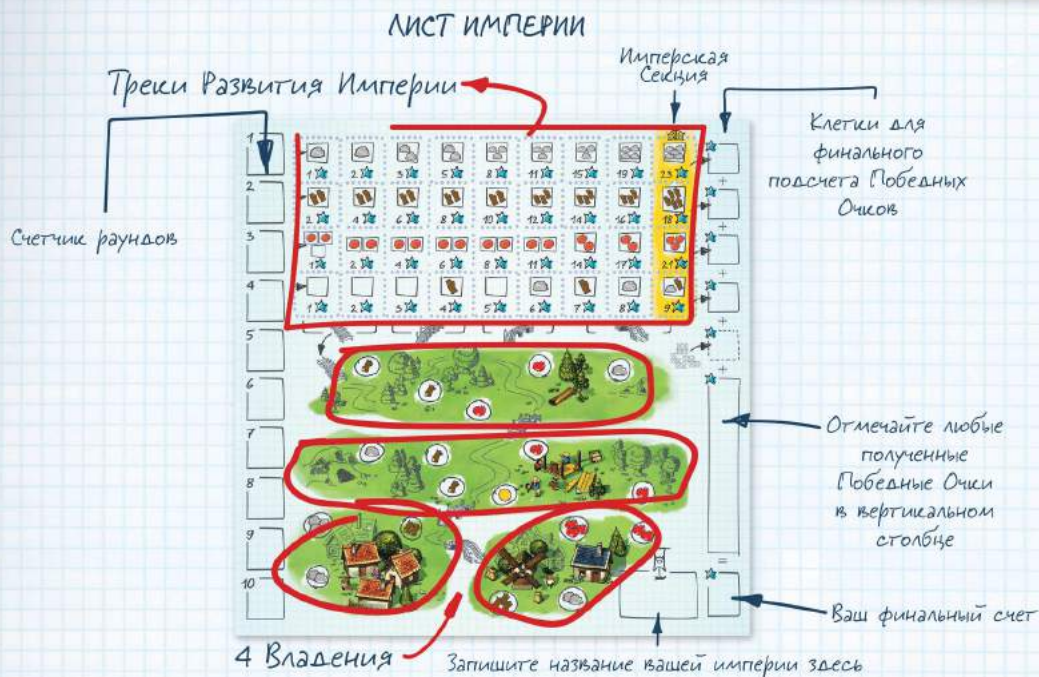 ЛИСТ ИМПЕРИИ
Треки Развития Империи
Имперская
Секция
Клетки для
финального
подсчета Победных
Очков
Счетчик раундов
1
2
3
4
5
6
7
8
9
10
1 2 3 5 8 11 15 19 23
2 4 6 8 10 12 14 16 18
1 2 4 6 8 11 14 17 21
1 2 3 4 5 6 7 8 9
+
+
+
+
+
=
Отмечайте любые
полученные
Победные Очки
в вертикальном
столбце
Ваш финальный счет
4 Владения
Запишите название вашей империи здесь